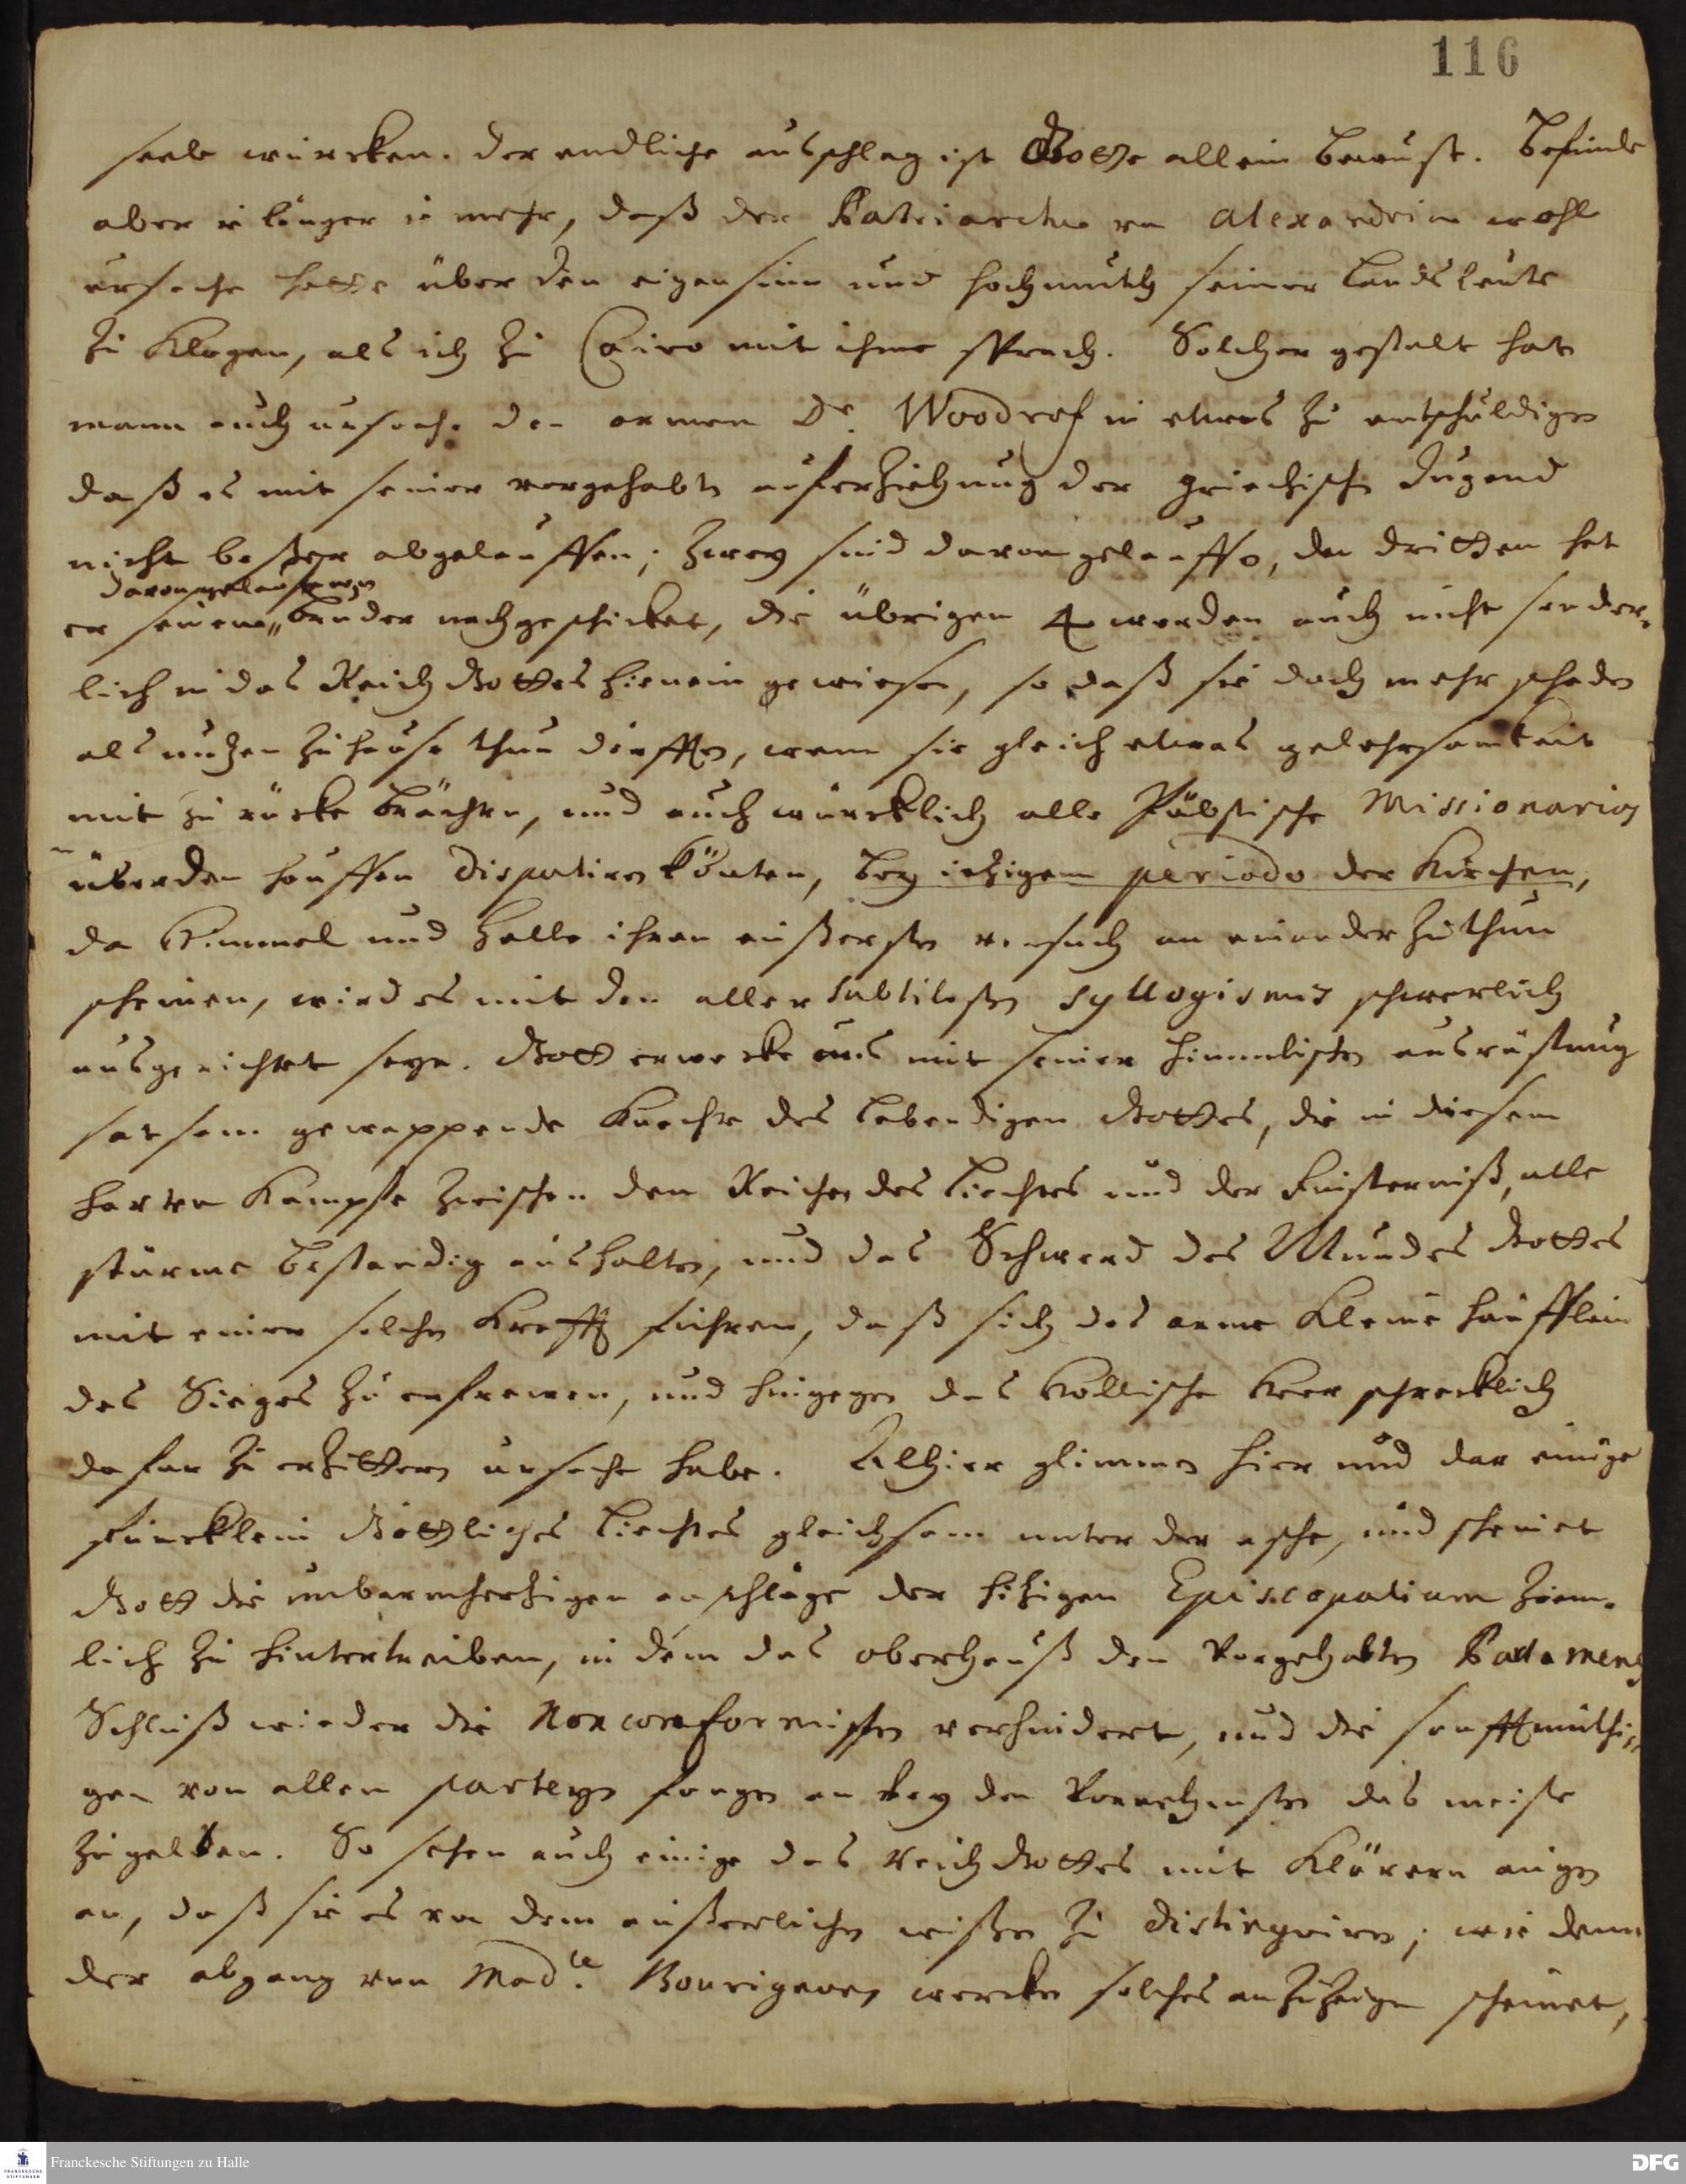 116
seele würcken. der endliche ausschlag ist Gotte allein bewust. befinde
aber je länger je mehr, daß der Patriarcha von Alexandrien wohl
ursache hatte über den eigensinn und hochmuth seiner Landsleute
zu klagen, als ich zu Cairo mit ihme sprach. Solcher gestalt hat
mann auch ursache den armen Dr. Woodrof in etwas zu entschuldigen
daß es mit seiner vorgehabten auferziehung der griechischen Jugend
nicht beßer abgelauffen; zwey sind davon gelauffen, den dritten hat
davongelauffenen
er seinem bruder nachgeschicket, die übrigen 4 werden auch nicht sonder-
lich in das Reich Gottes hienein gewiesen, so daß sie doch mehr schaden
als nutzen zu hause thun dörfften, wenn sie gleich etwas gelehrsamkeit
mit zu rücke brächten, und auch würcklich alle Päbstische Missionarios
über den hauffen disputiren könten, bey ietzigem periodo der Kirchen,
da Himmel und Hölle ihren eußersten versuch an einander zu thun
scheinen, wird es mit den aller subtilesten syllogismis schwerlich
ausgerichtet seyn. Gott erwecke uns mit seiner himmlischen ausrüstung
satsam gewappende Knechte des lebendigen Gottes, die in diesem
harten Kampfe zwischen den Reichen des Liechtes und der Finsterniß, alle
stürme bestandig aushalten, und das Schwerd des Mundes Gottes
mit einer solchen Krafft führen, daß sich das arme kleine häufflein
des Sieges zu erfrewen, und hingegen das höllische Heer schrecklich
dafur zu erzittern ursache habe. Alhier glimmen hier und dar einige
füncklein Göttliches Liechtes gleichsam unter der asche, und scheinet
Gott die unbarmhertzigen anschläge der hitzigen Episcopalium ziem-
lich zu hintertreiben, in dem das oberhauß den vorgehabten Parlaments
Schluß wieder die Nonconformisten verhindert, und die sanfftmüthi-
gen von allen parteyen fangen an bey den Vornehmsten das meiste
zu gelten. So sehen auch einige das Reich Gottes mit klärern augen
an, daß sie es von dem eußerlichen wißen zu distinguiren; wie denn
der abgang von Madle. Bourignons wercken solches anzuzeigen scheinet,
Franckesche Stiftungen zu Halle
DFG